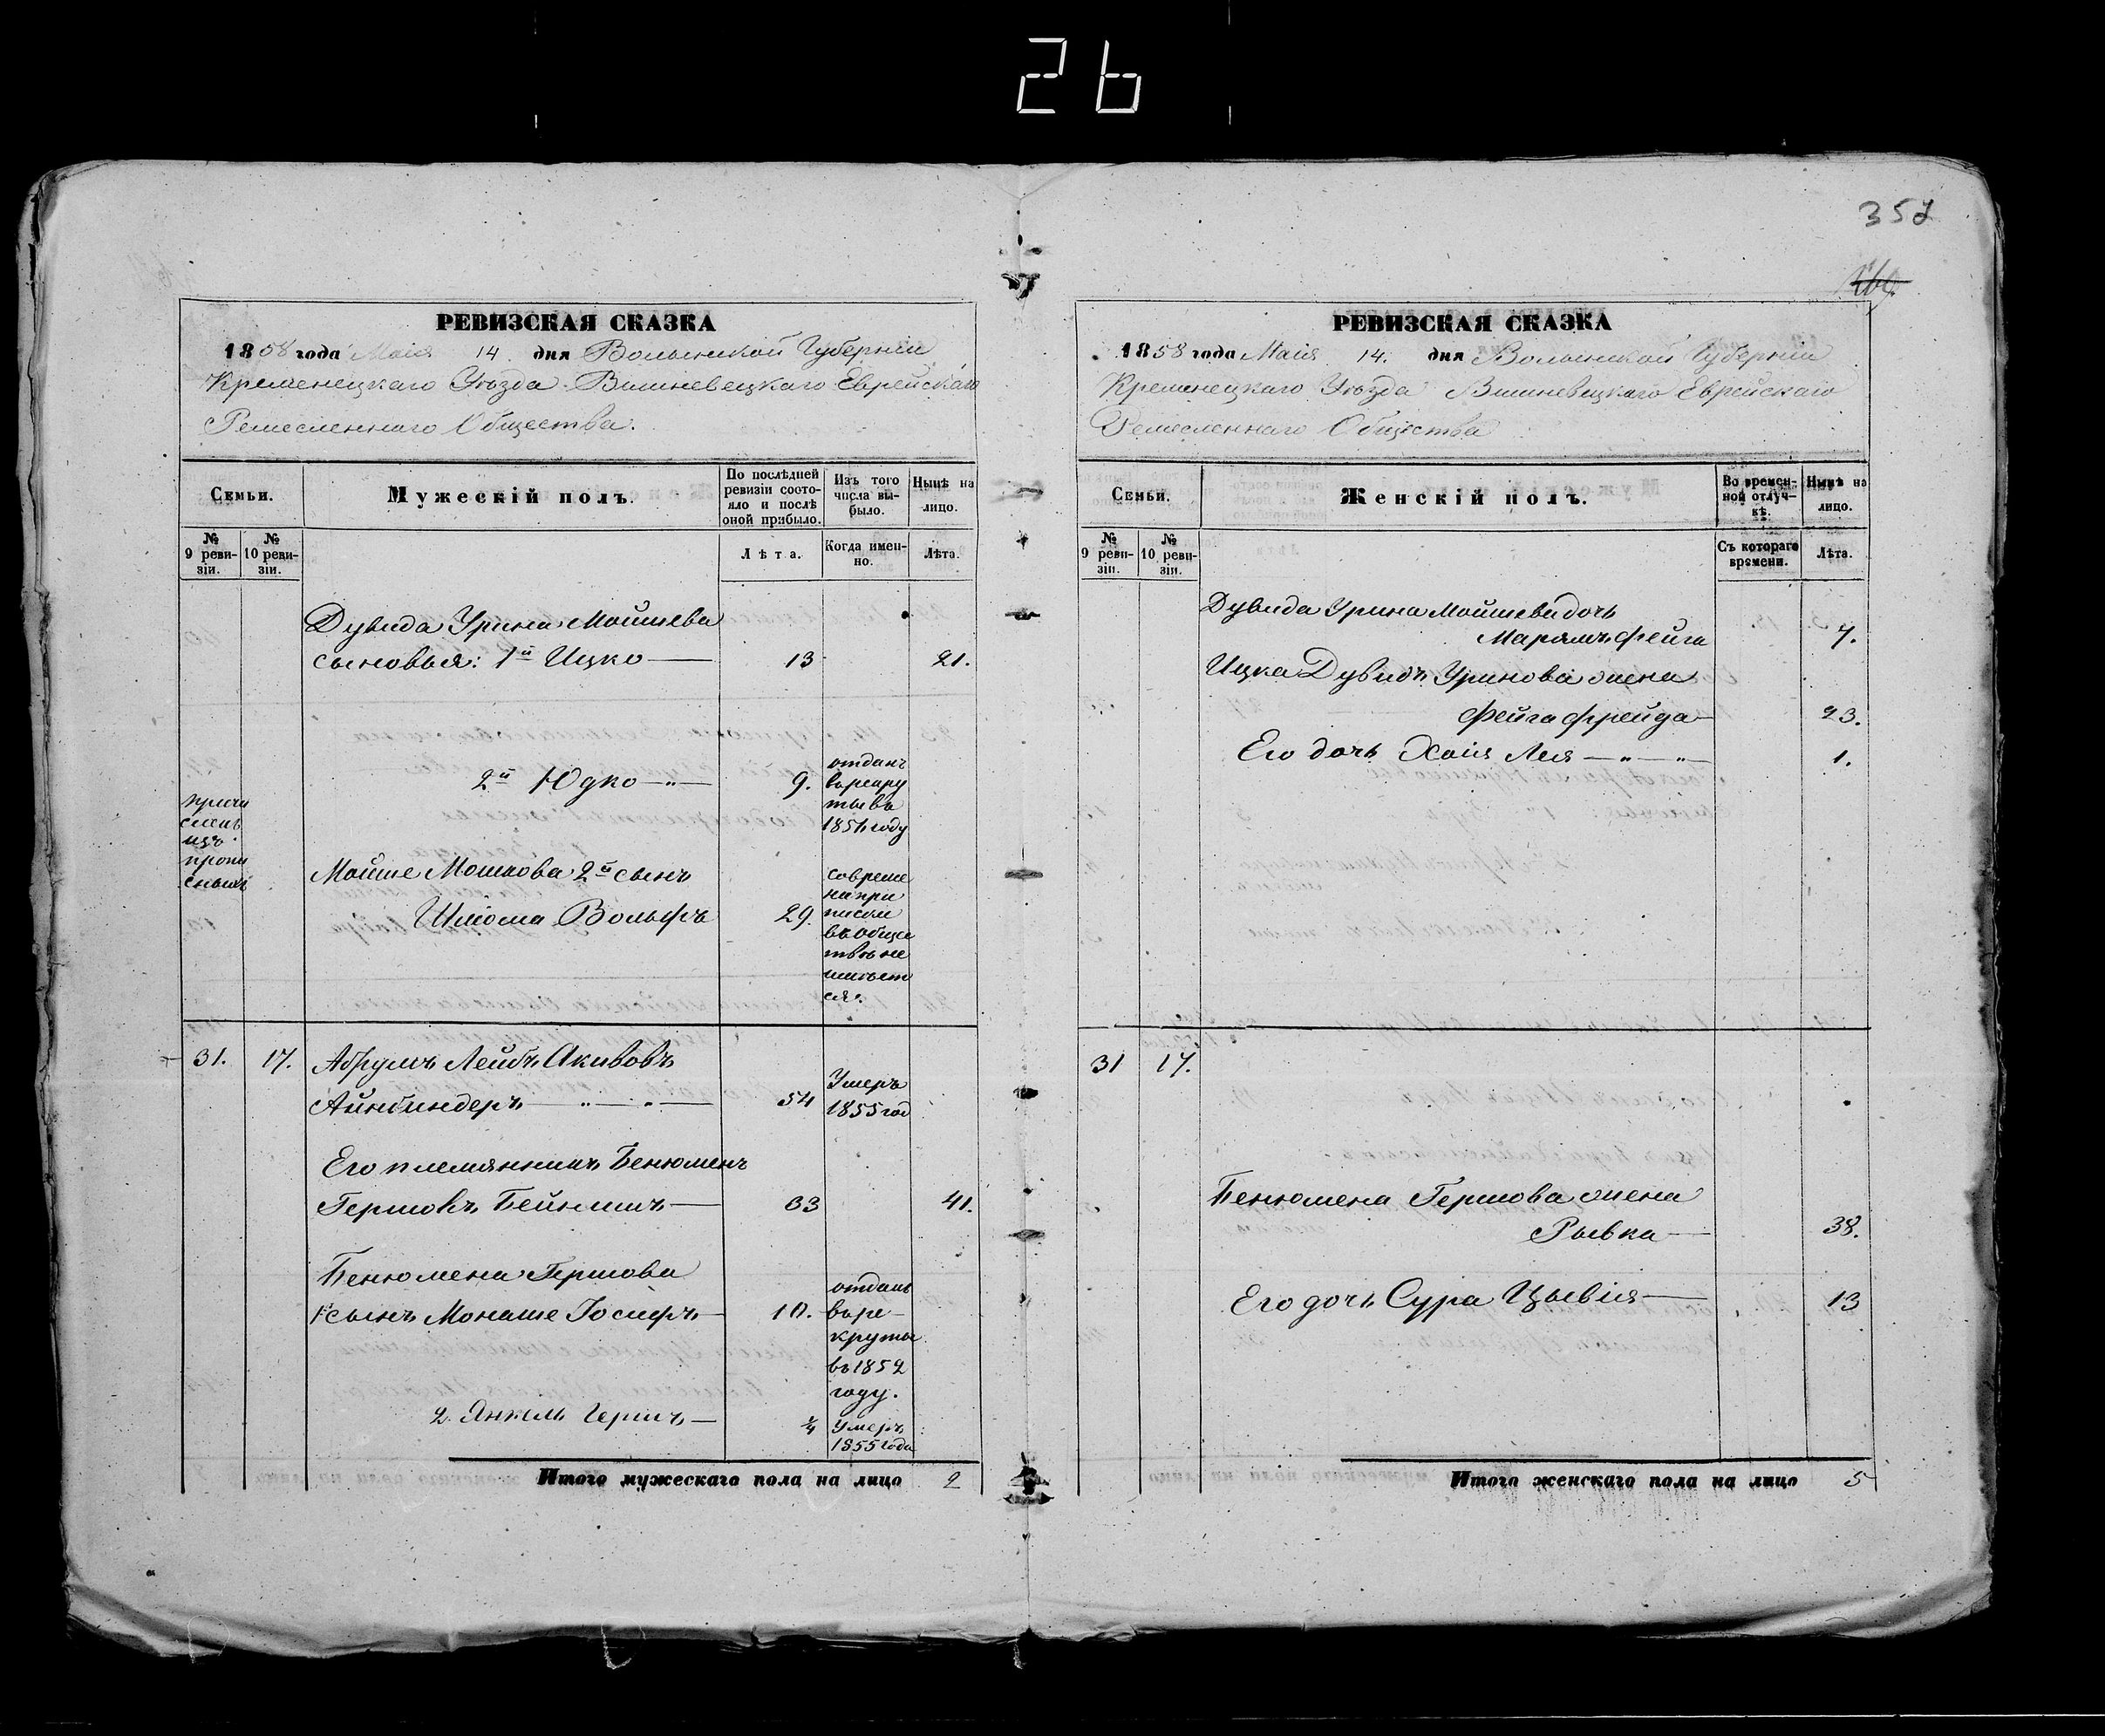 26
357
РЕВИЗСКАЯ СКАЗКА
1858 года Маія 14. дня Волынской Губерніи
Кременецкаго Уѣзда Вишневецкаго Еврейскаго
Ремесленнаго Общества.
Семьи.
Мужескій полъ.
По послѣдней ревизіи состояло и послѣ оной прибыло.
Изъ того числа выбыло.
Нынѣ на лицо.
№ 9 ревизіи.
№ 10 ревизіи.
Лѣта.
Когда именно.
Лѣта.
Дувида Урина Мойшева
сыновья: 1й Ицко — 13 21.
2й Юдко — " — 9.
отданъ
въ рекру
ты въ
1851 году
причи
сленъ
изъ
пропи
сныхъ
Мойше Мошкова 2й сынъ
Шлома Вольфъ 29.
со време
ни при
писки
въ Обще
ствѣ не
имѣет
ся.
31. 17. Абрумъ Лейбъ Акивовъ
Айнбиндеръ — " — " — 54
Умеръ
1855 год
Его племянникъ Бенюменъ
Гершовъ Бейнишъ — 33 41.
Бенюмена Гершова
1й сынъ Монаше Іосифъ — 10.
отданъ
въ ре-
круты
въ 1852
году.
2. Янкель Гершъ — ¾
Умеръ
1855 года
Итого мужескаго пола на лицо 2
РЕВИЗСКАЯ СКАЗКА
1858 года Маія 14. дня Волынской Губерніи
Кременецкаго Уѣзда Вишневецкаго Еврейскаго
Ремесленнаго Общества
Семьи.
Женскій полъ.
Во временной отлучкѣ.
Нынѣ на лицо.
№ 9 ревизіи.
№ 10 ревизіи.
Съ котораго времени.
Лѣта.
Дувида Урина Мойшева дочь
Марямъ Фейга 7.
Ицка Дувидъ Уринова жена
Фейга Фрейда — 23.
Его дочь Хаія Лея — " — " — 1.
31 17.
Бенюмена Гершова жена
Рывка — 38.
Его дочь Сура Цывія — 13
Итого женскаго пола на лицо 5